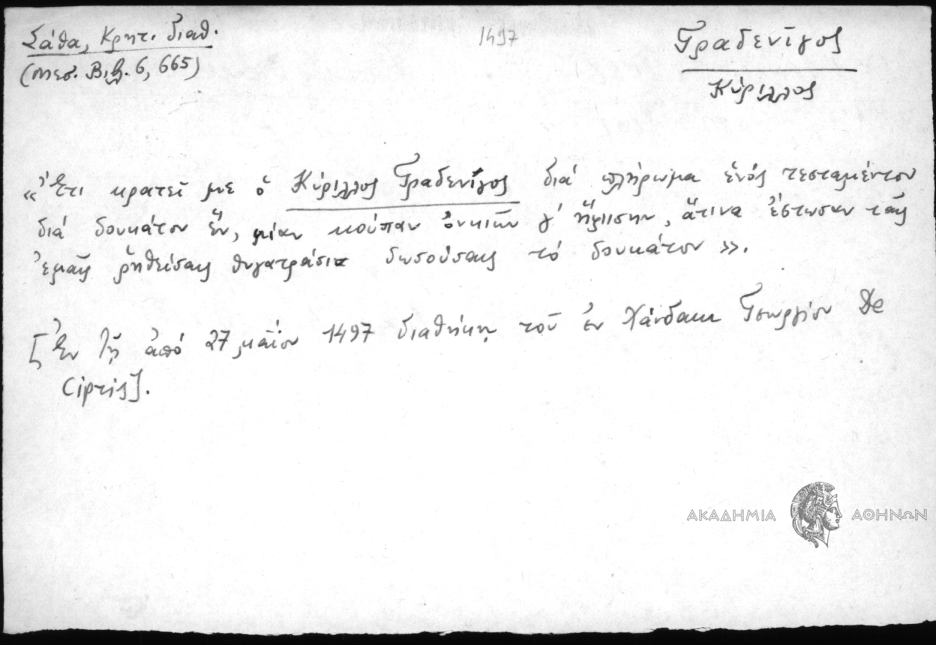 Σάθα, Κρητ. Διαθ.
(Μεσ. Βιβλ. 6, 665)
1497
Γραδενῖγος
Κύριλλος
«Ἔτι κρατεῖ με ὁ Κύριλλος Γραδενῖγος διά πλήρωμα ἑνός τεσταμέντου
διά δουκάτον ἕν, μίαν κούπαν ὀνκιῶν γ' ἥμισην, ἅτινα ἔστωσαν ταῖς
ἐμαῖς ῥηθείσαις θυγατράσι δωσούσαις τό δουκάτον».
[Ἐν τῇ ἀπό 27 μαΐου 1497 διαθήκῃ τοῦ ἐν Χάνδακι Γεωργίου De
Cipris].
ΑΚΑΔΗΜΙΑ ΑΘΗΝΩΝ